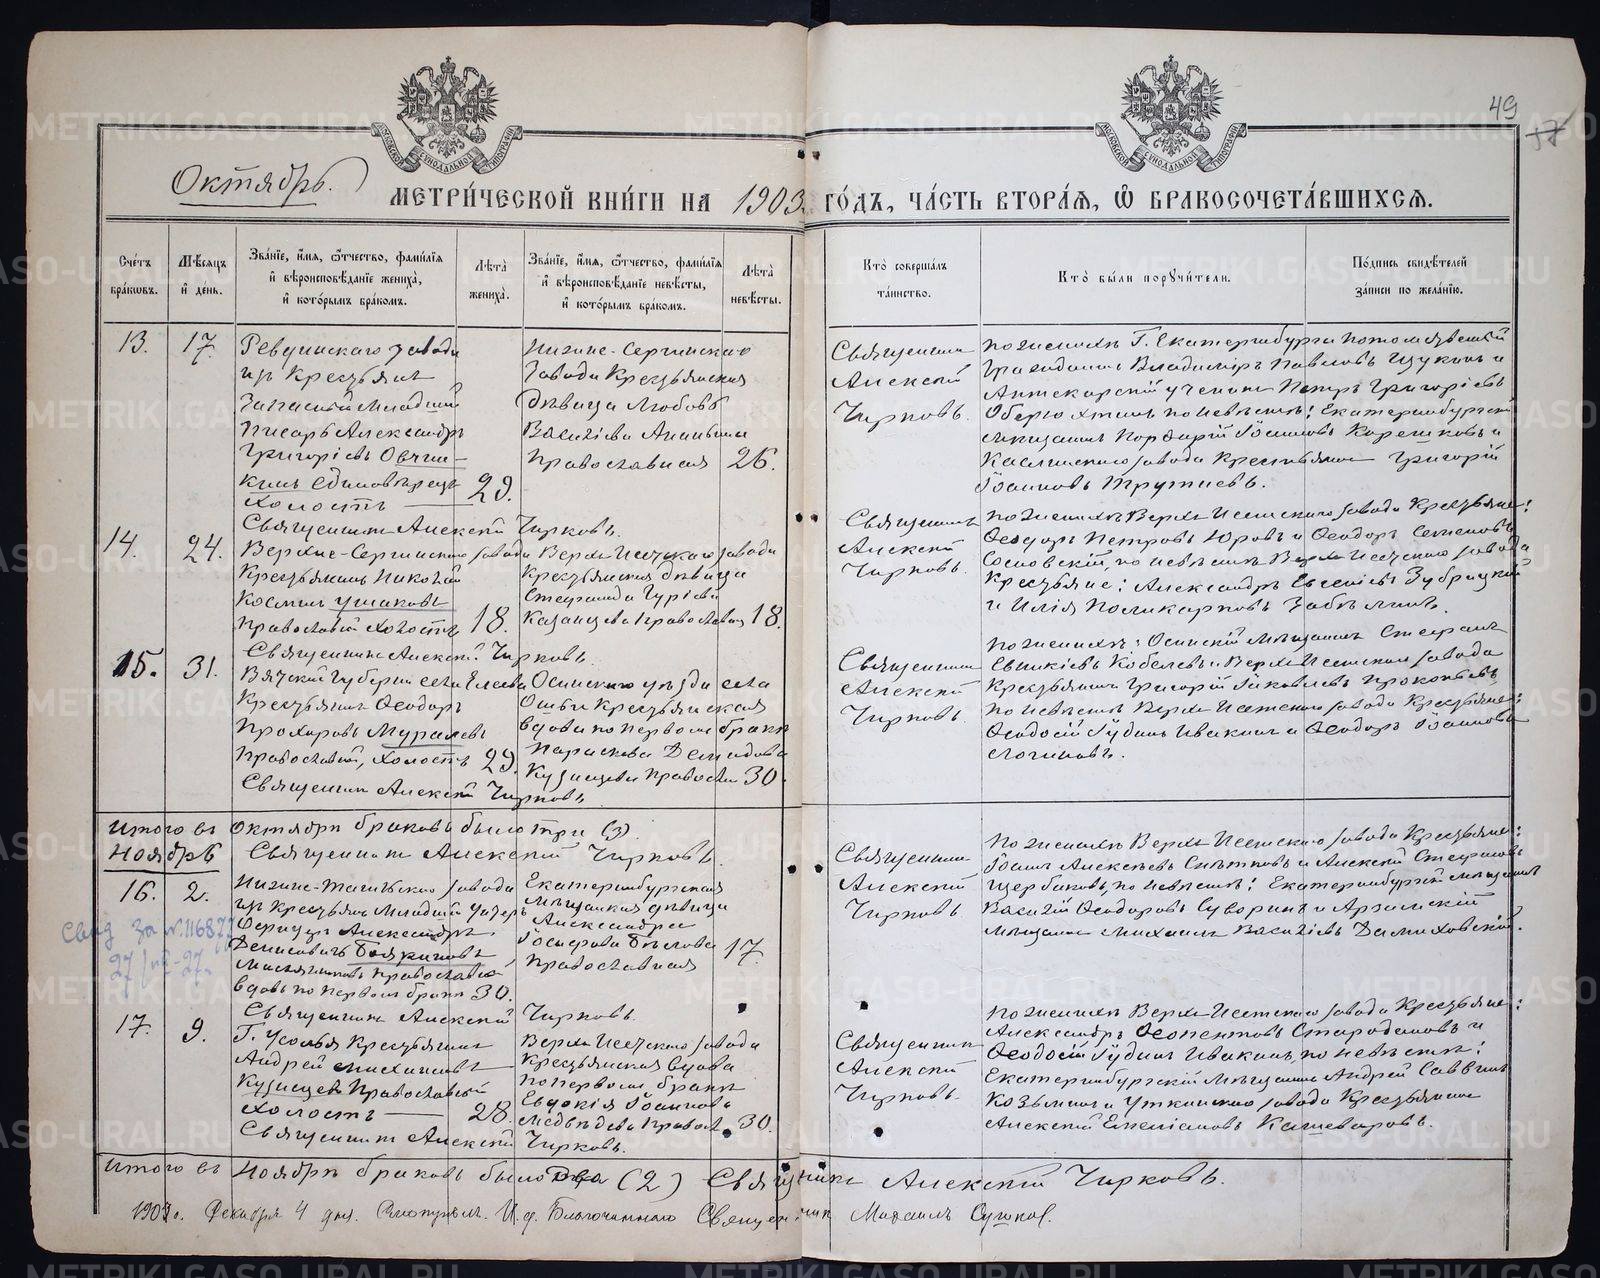 49
57
Октябрь.
МЕТРИ́ЧЕСКОЙ КНИ́ГИ НА 1903 ГО́ДЪ, ЧА́СТЬ ВТОРА́Я, Ѡ БРАКОСОЧЕТА́ВШИХСЯ.
Сче́тъ бра́ковъ.
Мѣ́сяцъ и́ день.
Зва́нїе, и́мя, ѻ҆́тчество, фами́лїя и́ вѣроисповѣ́данїе жениха̀, и́ кото́рымъ бра́комъ.
Лѣта̀ жениха̀.
Зва́нїе, и́мя, ѻ҆́тчество, фами́лїя и́ вѣроисповѣ́данїе невѣ́сты, и́ кото́рымъ бра́комъ.
Лѣта̀ невѣ́сты.
Кто̀ соверша́лъ та́инство.
Кто̀ бы́ли порꙋчи́тели.
По́дпись свидѣ́телей за́писи по жела́нїю.
13.
17.
Ревдинскаго завода
изъ крестьянъ
Запасный Младшій
Писарь Александръ
Григоріевъ Овчин-
кинъ Единовѣрецъ
холостъ
29.
Нижне-Сергинскаго
завода Крестьянская
дѣвица Любовь
Василіева Ананьина
Православная
26.
Священникъ
Алексій
Чирковъ.
По женихѣ Г. Екатеринбурга потомственный
гражданинъ Владиміръ Павловъ Щукинъ и
Аптекарскій ученикъ Петръ Григоріевъ
по невѣстѣ: Екатеринбургскій
мѣщанинъ Порфирій Іоанновъ Корешковъ и
Каслинскаго завода Крестьянинъ Григорій
Іоанновъ Трутневъ.
Священникъ Алексій Чирковъ.
14.
24.
Верхне-Сергинскаго завода
Крестьянинъ Николай
Космин Ушаковъ
православный холостъ
18.
Верхъ Исетскаго завода
Крестьянская дѣвица
Стефанида Гуріева
Казанцева Православная
18.
Священникъ
Алексій
Чирковъ.
По женихѣ Верхъ Исетскаго завода Крестьяне:
Ѳеодоръ Петровъ Юровъ и Ѳеодоръ Семеновъ
Сосновскій, по невѣстѣ Верхъ Исетскаго завода
Крестьяне: Александръ Евсевіевъ Зубрицкій
и Илія Поликарповъ Забѣлинъ.
Священникъ Алексій Чирковъ.
15.
31.
Вятской Губерніи села Елева
Крестьянинъ Ѳеодоръ
Прохоровъ Муралевъ
Православный, холостъ
29.
Осинскаго уѣзда села
Ошьи Крестьянская
вдова по первомъ бракѣ
Параскева Демидова
Кузнецова Православн
30.
Священникъ
Алексій
Чирковъ
По женихѣ: Осинскій мѣщанинъ Стефанъ
Евникіевъ Кобелевъ и Верхъ Исетскаго завода
Крестьянинъ Григорій Яковлевъ Прокопьевъ
по невѣстѣ Верхъ Исетскаго завода Крестьяне:
Ѳеодосій Іудинъ Ивакинъ и Ѳеодоръ Іоанновъ
Логиновъ.
Священникъ Алексій Чирковъ
Итого въ Октябрѣ браковъ было три (3).
Священникъ Алексій Чирковъ.
Ноябрь
16.
2.
Нижне-Тагильскаго завода
изъ Крестьянъ Младшій Унтеръ
Офицеръ Александръ
Денисовичъ Бояринцовъ
Православный
вдовъ по первомъ бракѣ
30.
Екатеринбургская
мѣщанская дѣвица
Александра
Іосифова Бѣлова
Православная
17.
Священникъ
Алексій
Чирковъ
По женихѣ Верхъ Исетскаго завода Крестьяне:
Іоаннъ Алексѣевъ Ситковъ и Алексій Стефановъ
Щербаковъ, по невѣстѣ: Екатеринбургскій мѣщанинъ
Василій Ѳеодоровъ Суворинъ и Арзамскій
мѣщанинъ Михаилъ Василіевъ Дашковскій.
Свид за №. 116877
27/VII-27.
Священникъ Алексій Чирковъ.
17.
9.
Г. Усолья Крестьянинъ
Андрей Михаиловъ
Кузнецовъ Православный
холостъ
28.
Верхъ Исетскаго завода
Крестьянская вдова
по первомъ бракѣ
Евдокія Іоаннова
Медвѣдева Правосл
30.
Священникъ
Алексій
Чирковъ.
По женихѣ Верхъ Исетскаго завода Крестьяне:
Александръ Ѳеопентовъ Стародомовъ и
Ѳеодосій Іудинъ Ивакинъ, по невѣстѣ:
Екатеринбургскій мѣщанинъ Андрей Саввинъ
Козьминъ и Уткинскаго завода Крестьянинъ
Алексій Емеліановъ Кашеваровъ.
Священникъ Алексій Чирковъ.
Итого въ Ноябрѣ браковъ было два (2) Священникъ Алексій Чирковъ.
1903 г. Декабря 4 дня. Смотрѣлъ. И. д. Благочиннаго Священникъ Михаилъ Сушков.
METRIKI.GASO-URAL.RU